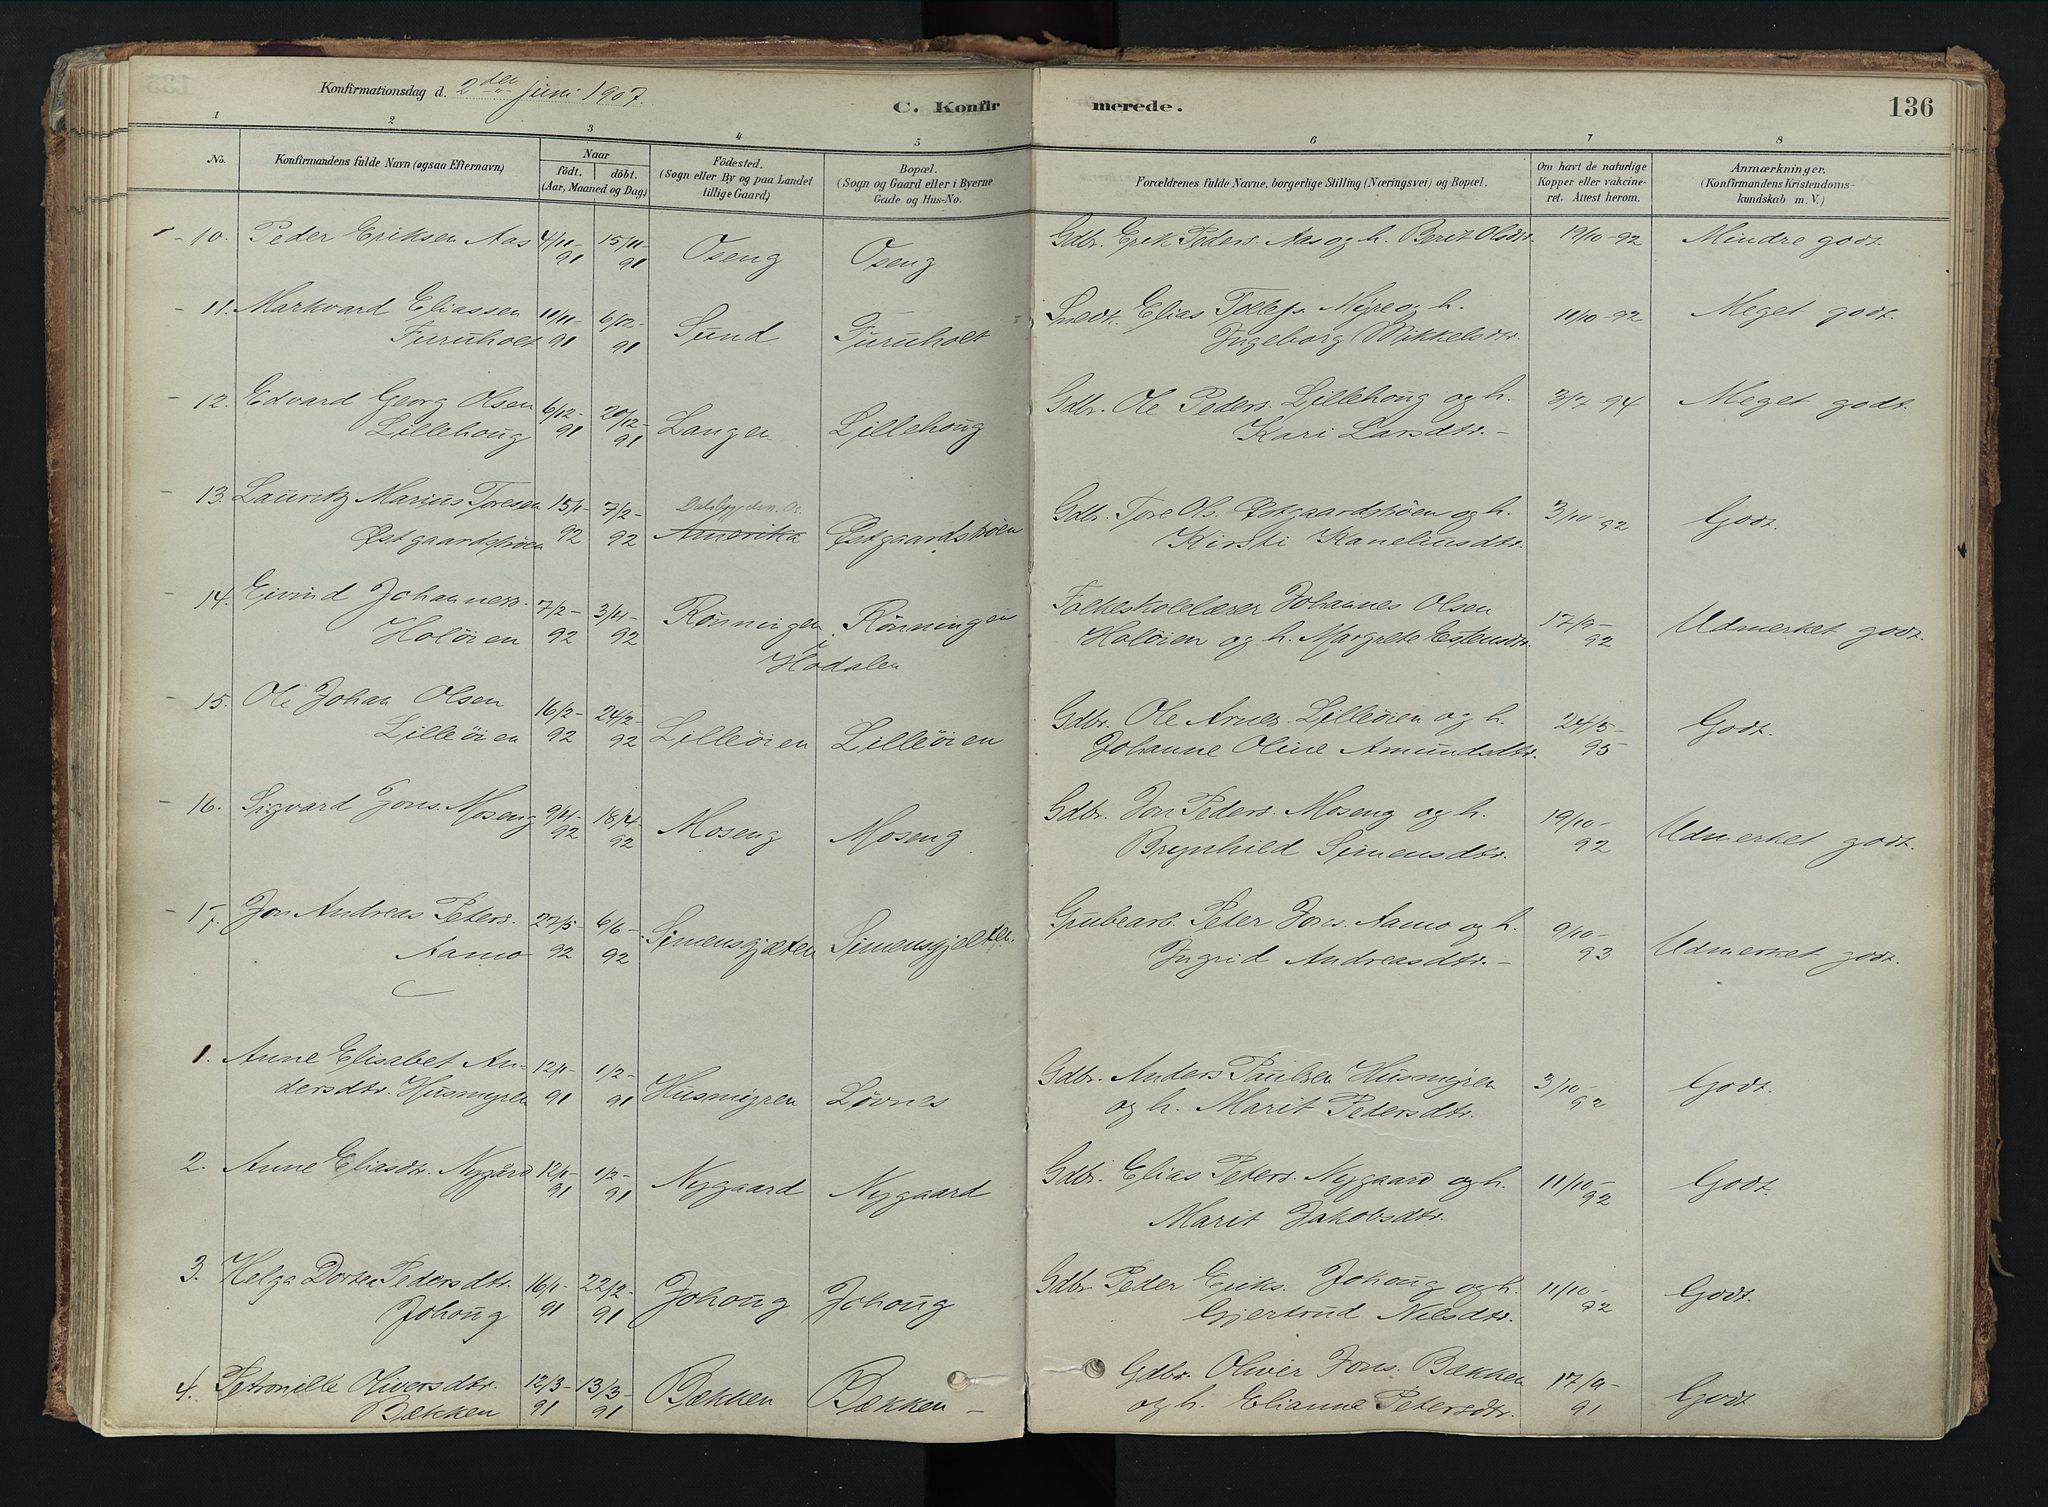 Konfirmationsdag d. 2den juni 1907.
C. Konfirmerede.
136
1 2 3 4 5 6 7 8
No.
Konfirmandens fulde Navn (ogsaa Efternavn)
Naar
födt. döbt.
(Aar, Maaned og Dag)
Födested.
(Sogn eller By og paa Landet
tillige Gaard)
Bopæl.
(Sogn og Gaard eller i Byerne
Gade og Hus-No.
Forældrenes fulde Navne, borgerlige Stilling (Næringsvei) og Bopæl.
Om havt de naturlige
Kopper eller vakcine-
ret. Attest herom.
Anmærkninger.
(Konfirmandens Kristendoms-
kundskab m. V.)
10. Peder Eriksen Aas 4/11-91 15/11-91 Oseng Oseng Gdbr. Erik Peders. Aas og h. Berit Olsdtr. 19/10-92 Mindre godt.
11. Markvard Eliassen 11/11-91 6/12-91 Sund Furuholt Smedt. Elias Tollefs. Myre og h. 11/10-92 Meget godt.
Furuholt Ingeborg Mikkelsdtr.
12. Edvard Georg Olsen 6/12-91 20/12-91 Langen Lillehoug Gdbr. Ole Peders. Lillehoug og h. 3/7 94 Meget godt.
Lillehoug Kari Larsdtr. -
13. Lauritz Marius Toresen 15/1-92 7/2-92 Dalsbygden. Os. Amerika Østgaardstrøen Gdbr. Tore Ols. Østgaardstrøen og h. 3/10-92 Godt.
Østgaardstrøen Kirsti Kaneliusdtr.
14. Eivind Johanness. 7/2-92 3/4-92 Rönningen i Rönningen Folkeskolelærer Johannes Olsen 17/9-92 Udmerket godt.
Holöien Hodalen Holöien og h. Margrete Estensdtr.
15. Ole Johan Olsen 16/2-92 24/2-92 Lilleöien Lilleöien Gdbr. Ole Arnes. Lilleöien og h. 24/5-95 Godt.
Lilleöien Johanne Oline Amundsdtr.
16. Sigvard Jons. Moseng 9/4-92 18/4-92 Moseng Moseng Gdbr. Jon Peders. Moseng og h. 19/10-92 Udmerket godt.
Brynhild Simensdtr.
17. Jon Andreas Peters. 27/5-92 6/6-92 Simensgjelten Simensgjelten. Grubearb. Peter Jons. Aamo og h. 9/10-93 Udmerket godt.
Aamo Ingrid Andreasdtr. -
1. Anne Elisabet An- 12/1-91 1/2-91 Husmyren Løvnes Gdbr. Anders Paulsen Husmyren 3/10-92 Godt.
dersdtr. Husmyren og h. Marit Petersdtr.
2. Anne Eliasdtr. Nygård 12/1-91 1/2-91 Nygaard Nygaard Gdbr. Elias Peters. Nygaard og h. 11/10-92 Godt.
Marit Jakobsdtr.
3. Helga Dortea Pedersdtr. 16/1-91 22/2-91 Johoug Johoug Gdbr. Peder Eriks. Johoug og h. 11/10-92 Godt.
Johoug Gjertrud Nilsdtr.
4. Petronille Oliversdtr. 12/3-91 13/3-91 Bækken Bækken - Gdbr. Oliver Jons. Bækken 17/9-91 Godt
Bækken og h. Elianna Petersdtr.